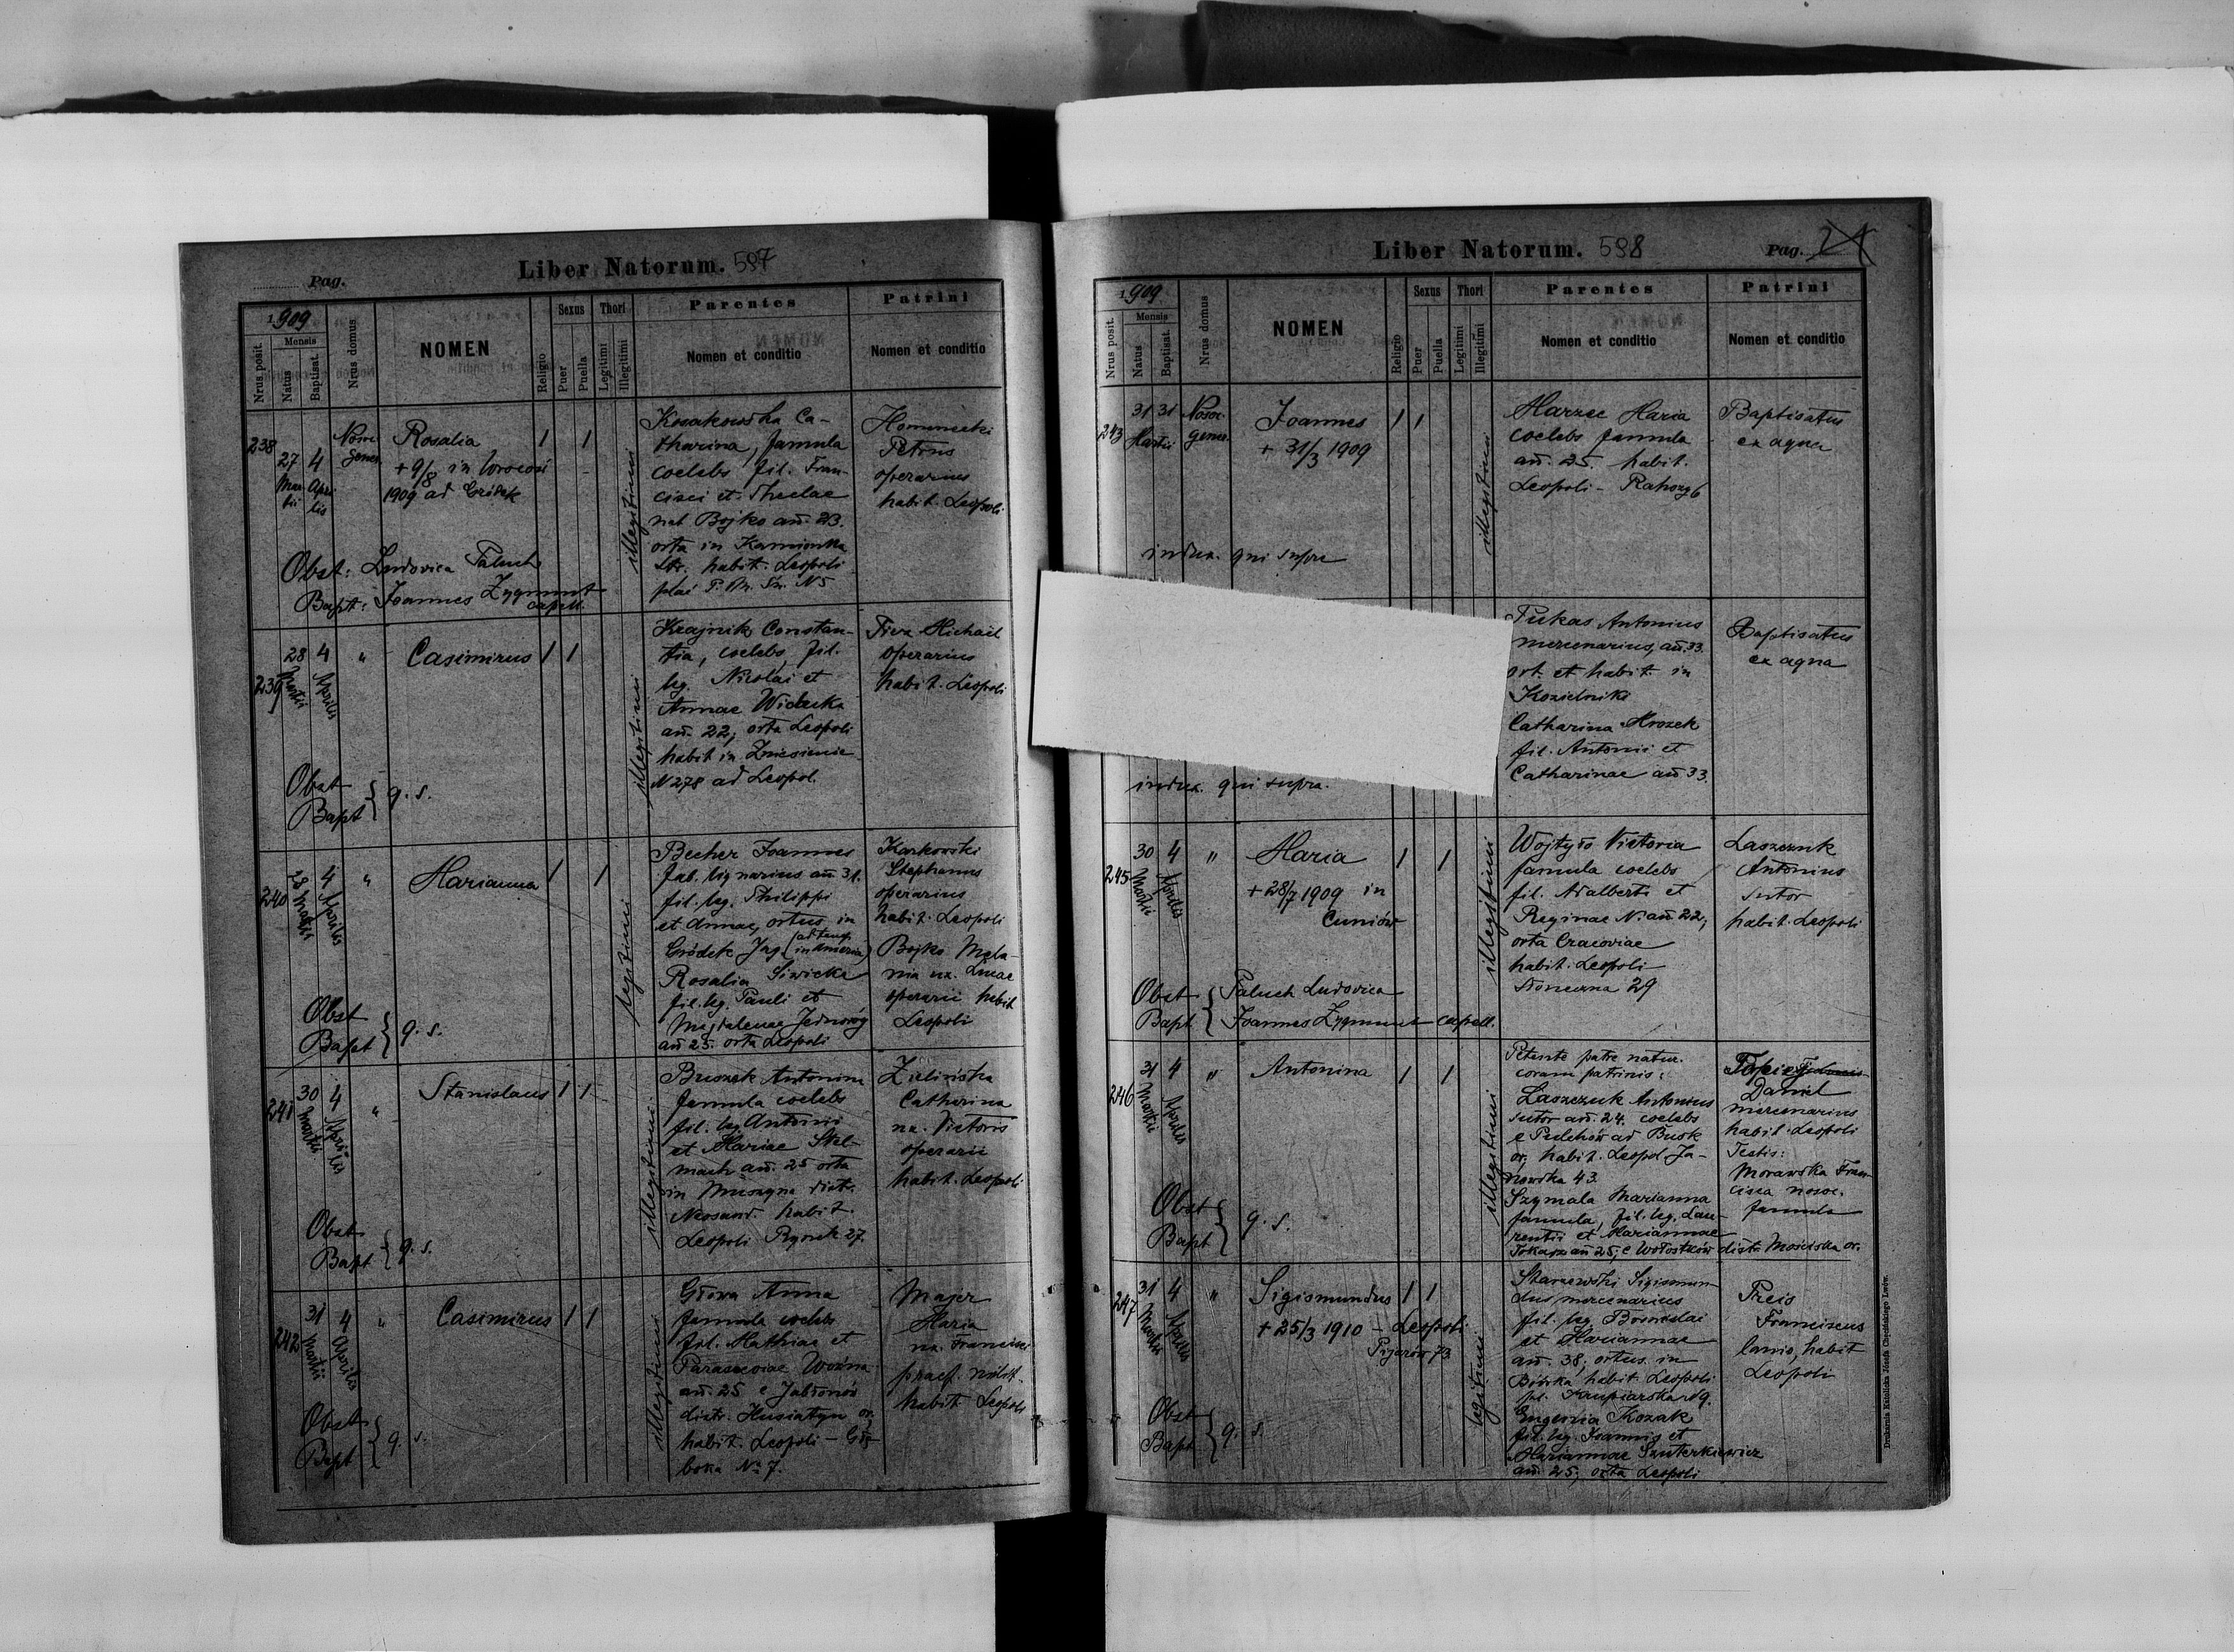 Pag.
Liber Natorum. 597
1909
Mensis
Nrus posit.
Natus
Baptisat.
Nrus domus
NOMEN
Religio
Sexus
Puer
Puella
Thori
Legitimi
Illegitimi
Parentes
Nomen et conditio
Patrini
Nomen et conditio
238
27 4
Mar- Apri
tii lis
Rosalia
+ 9/8 in
1909 ad Gródek
1 1
illegitimi
Kosakowska Ca-
tharina, famula
coelebs fil. Fran-
cisci et Theclae
nat Bojko añ. 23.
orta in Kamionka
Str. habit. Leopoli
N 5
Petrus
operarius
habit. Leopoli
Obst: Ludovica Paluch
Bapt: Joannes Zygmunt
capell.
239
28 4 "
Martii Aprilis
Casimirus 1 1
illegitimi
Krajnik Constan-
tia, coelebs, fil.
leg. Nicolai et
Annae Widecka
añ. 22, orta Leopoli
habit in Zniesienie
N 278 ad Leopol.
Michael
operarius
habit. Leopoli
Obst
Bapt } q. s.
240
28 4 "
Martii Aprilis
Marianna 1 1
legitimi
Becher Joannes
fab. lignarius añ 31.
fil. leg. Philippi
et Annae, ortus in
Gródek Jag. (ad temp. in America)
Rosalia Siwicka
fil. leg. Pauli et
Magdalenae Jednoróg
añ 25. orta Leopoli
Karkowski
Stephanus
operarius
habit. Leopoli
Bojko Mela-
nia ux. Lucae
operarii habit
Leopoli
Obst
Bapt } q. s.
241
30 4 "
Martii Aprilis
Stanislaus 1 1
illegitimi
Antonina
famula coelebs
fil. leg Antonii
et Mariae Stel-
mach añ. 25 orta
in Muszyna distr.
Neosand. habit.
Leopoli Rynek 27.
Zielińska
Catharina
ux. Victoris
operarii
habit. Leopoli
Obst
Bapt } q. s.
242
31 4 "
Martii Aprilis
Casimirus 1 1
illegitimi
Głowa Anna
famula coelebs
fil. Mathiae et
Parasceviae Woźna
añ. 25 e Jabłonów
distr. Husiatyn or.
habit. Leopoli – Głę-
boka No 7.
Majer
Maria
ux. Francisci
praef. milit.
habit Leopoli
Obst
Bapt } q. s.
Liber Natorum. 598
Pag. 24
1909
Mensis
Nrus posit.
Natus
Baptisat.
Nrus domus
NOMEN
Religio
Sexus
Puer
Puella
Thori
Legitimi
Illegitimi
Parentes
Nomen et conditio
Patrini
Nomen et conditio
243
31 31 Nosoc.
Martii gener.
Joannes 1 1
+ 31/3 1909
illegitimi
Marzec Maria
coelebs famula
añ. 25. habit.
Leopoli –
Baptisatus
ex aqua
qui supra
Pukas Antonius
mercenarius, añ. 33.
ort. et habit. in
Kozielniki
Catharina Mrozek
fil. Antonii et
Catharinae añ 33.
Baptisatus
ex aqua
qui supra.
245
30 4 "
Martii Aprilis
Maria 1 1
+ 28/7 1909 in
Cuniów
illegitimi
Wojtyło Victoria
famula coelebs
fil. Adalberti et
Reginae N. añ. 22,
orta Cracoviae
habit. Leopoli
Słoneczna 29
Laszczuk
Antonius
sutor
habit. Leopoli
Obst { Paluch Ludovica
Bapt { Joannes Zygmunt – capell.
246
31 4 "
Martii Aprilis
Antonina 1 1
illegitimi
Petente patre natur.
coram patrinis:
Laszczuk Antonius
sutor añ. 24. coelebs
e Pełchów ad Busk
or. habit. Leopol Ja-
nowska 43.
Szymala Marianna
famula, fil. leg. Lau-
rentii et Mariannae
Tokarz añ 25, e Wołostków distr. Mościska or.
Daniel
mercenarius
habit. Leopoli
Testis:
Morawska Fran-
cisca nosoc.
famula
Obst
Bapt } q. s.
247
31 4 "
Martii Aprilis
Sigismundus 1 1
+ 25/3 1910 – Leopoli
Pijarów 73
legitimi
Sigismun-
dus mercenarius
fil. leg. Bronislai
et Mariannae
añ. 38, ortus in
Bóbrka habit Leopoli
pl. Krupiarska 19.
Eugenia Kozak
fil. leg. Joannis et
Mariannae Szuterkiewicz
añ. 25, orta Leopoli
Preis
Franciscus
lanio, habit
Leopoli
Obst
Bapt } q. s.
Drukarnia Katolicka Józefa Chęcińskiego Lwów.